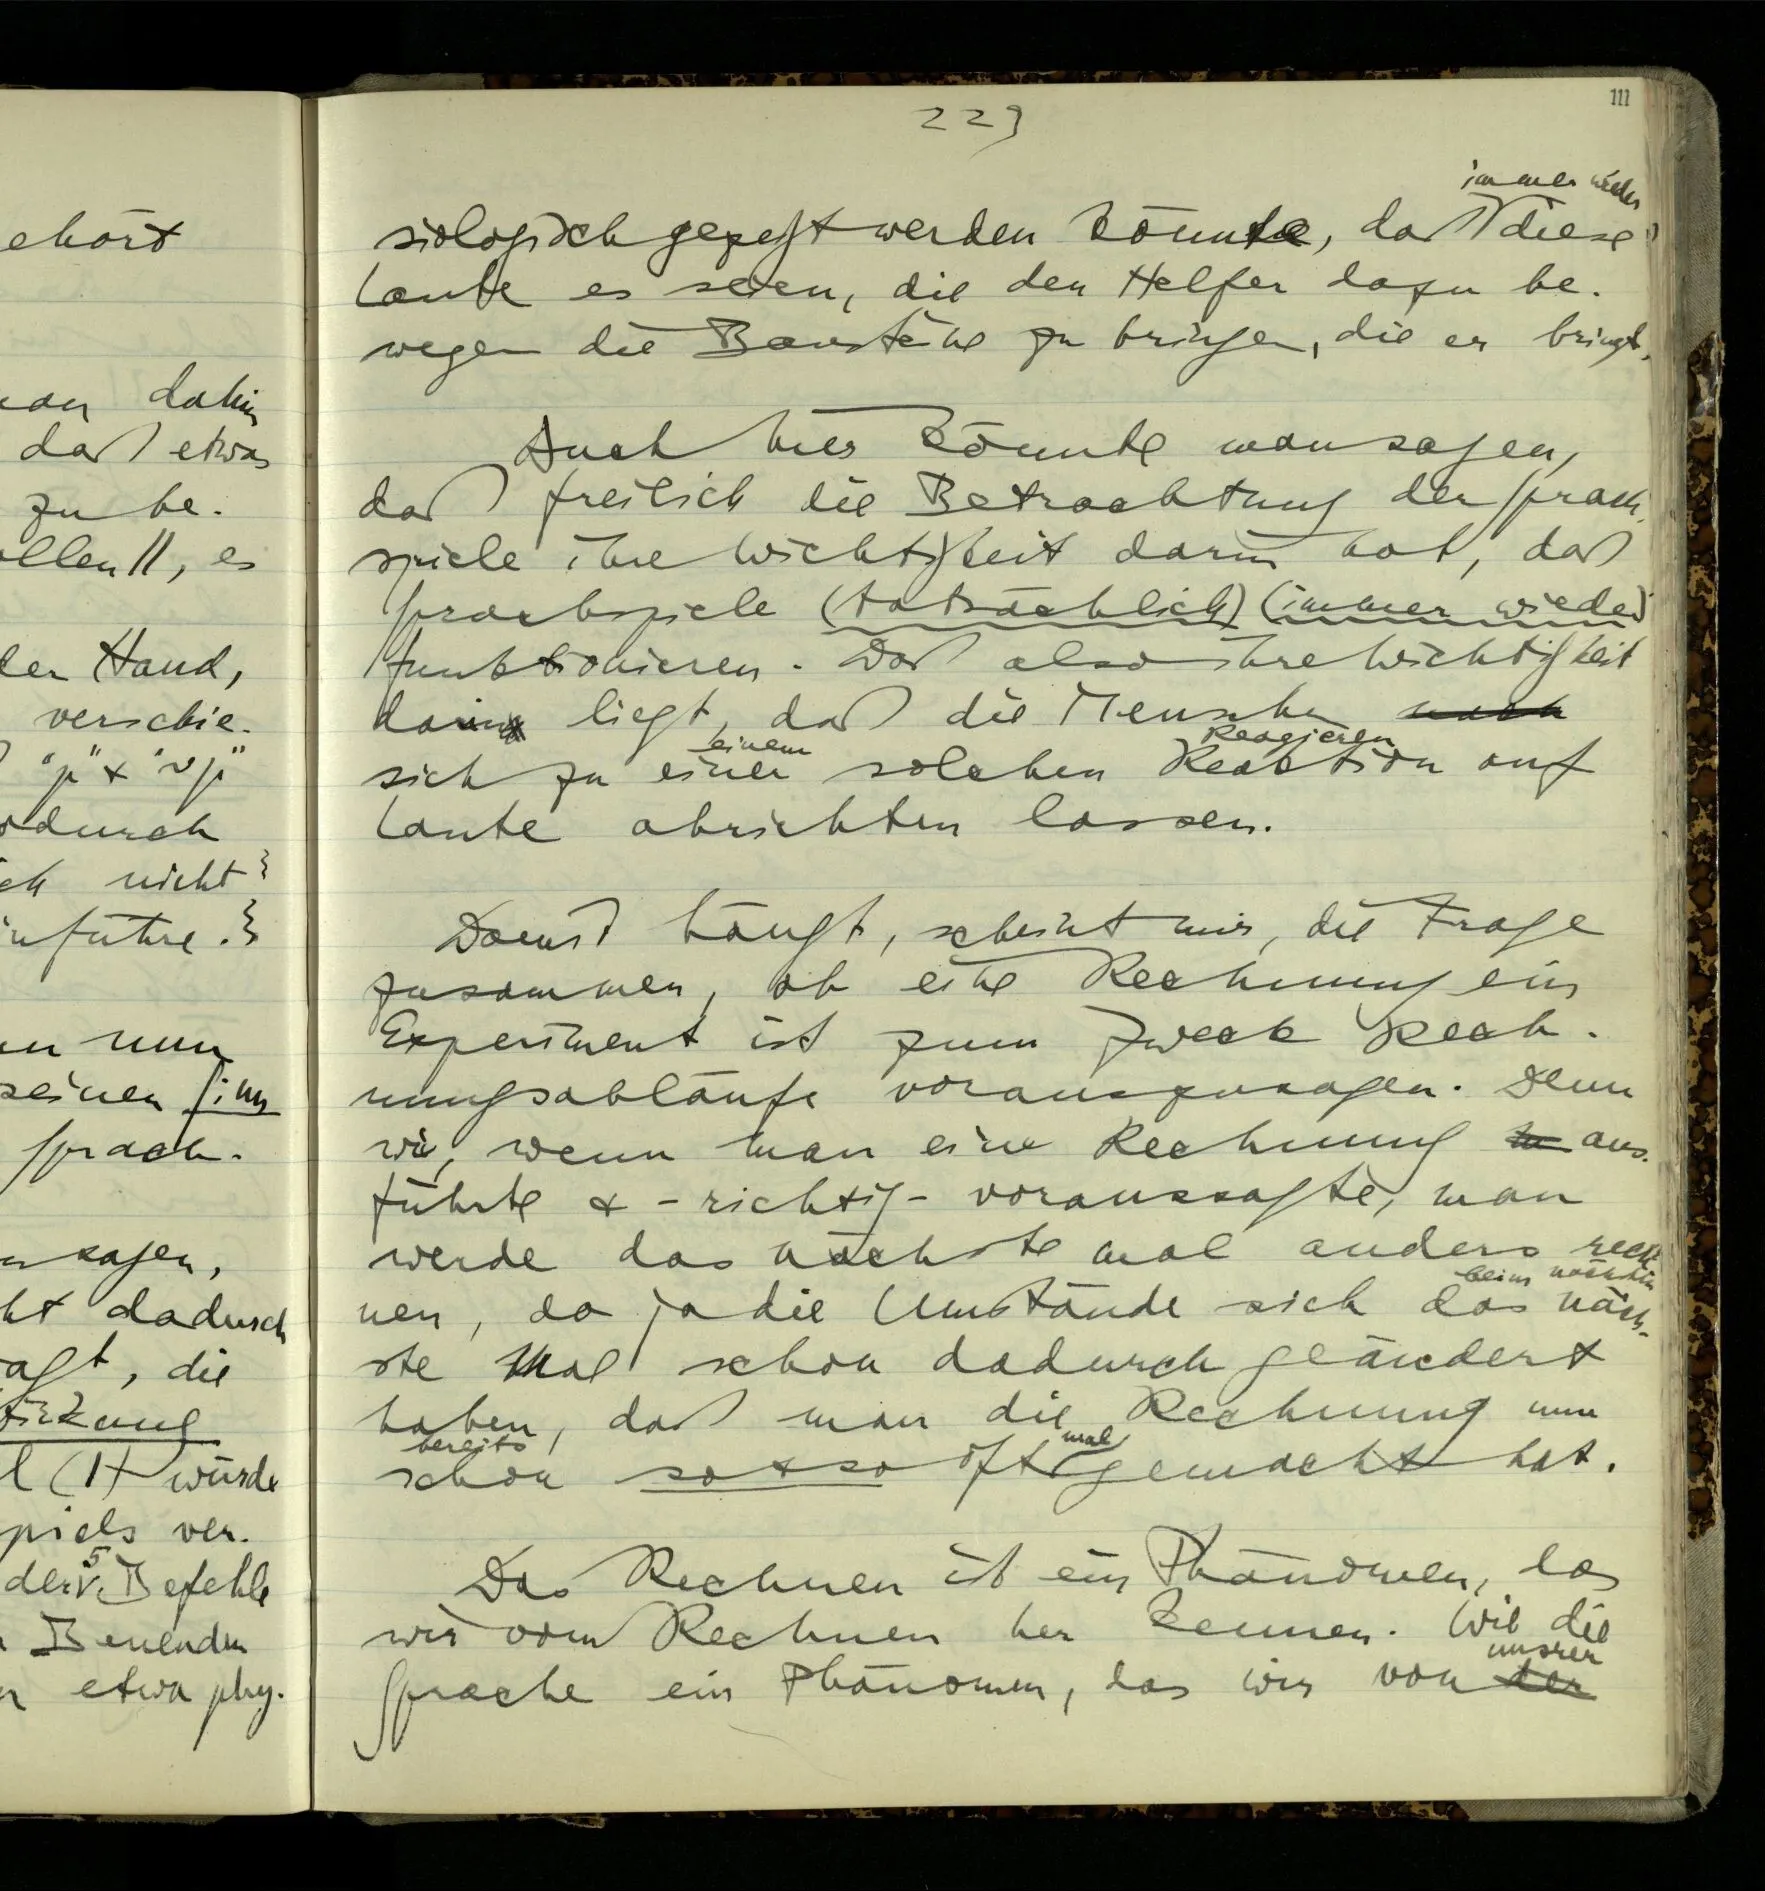 ehört
dahin
daß etwas
zu be-
ollen ||, es
der Hand,
verschie-
"p" & "~p"
odurch
ich nicht
inführe.
nun
seinen Sinn
Sprach-
sagen,
dadurch
agt, die
l (1) würde
spiels ver-
der 5 Befehle
Bauenden
etwa phy-
223
111
immer wieder
siologisch gezeigt werden könnte, daß diese
Laute es seien, die den Helfer dazu be-
wegen die Bausteine zu bringen, die er bringt.
Auch hier könnte man sagen,
daß freilich die Betrachtung der Sprach-
spiele ihre Wichtigkeit darin hat, daß
Sprachspiele (tatsächlich) (immer wieder)
funktionieren. Daß also ihre Wichtigkeit
darin liegt, daß die Menschen nach
einem Reagieren
sich zu einer solchen Reaktion auf
Laute abrichten lassen.
Damit hängt, scheint mir, die Frage
zusammen, ob eine Rechnung ein
Experiment ist zum Zweck Rech-
nungsabläufe vorauszusagen. Denn
wie, wenn man eine Rechnung aus-
führte & – richtig – voraussagte, man
werde das nächste mal anders rech-
beim nächsten
nen, da ja die Umstände sich das näch-
ste Mal schon dadurch geändert
haben, daß man die Rechnung nun
bereits mal
schon so & so oft gemacht hat.
Das Rechnen ist ein Phänomen, das
wir vom Rechnen her kennen. Wie die
unsrer
Sprache ein Phänomen, das wir von der